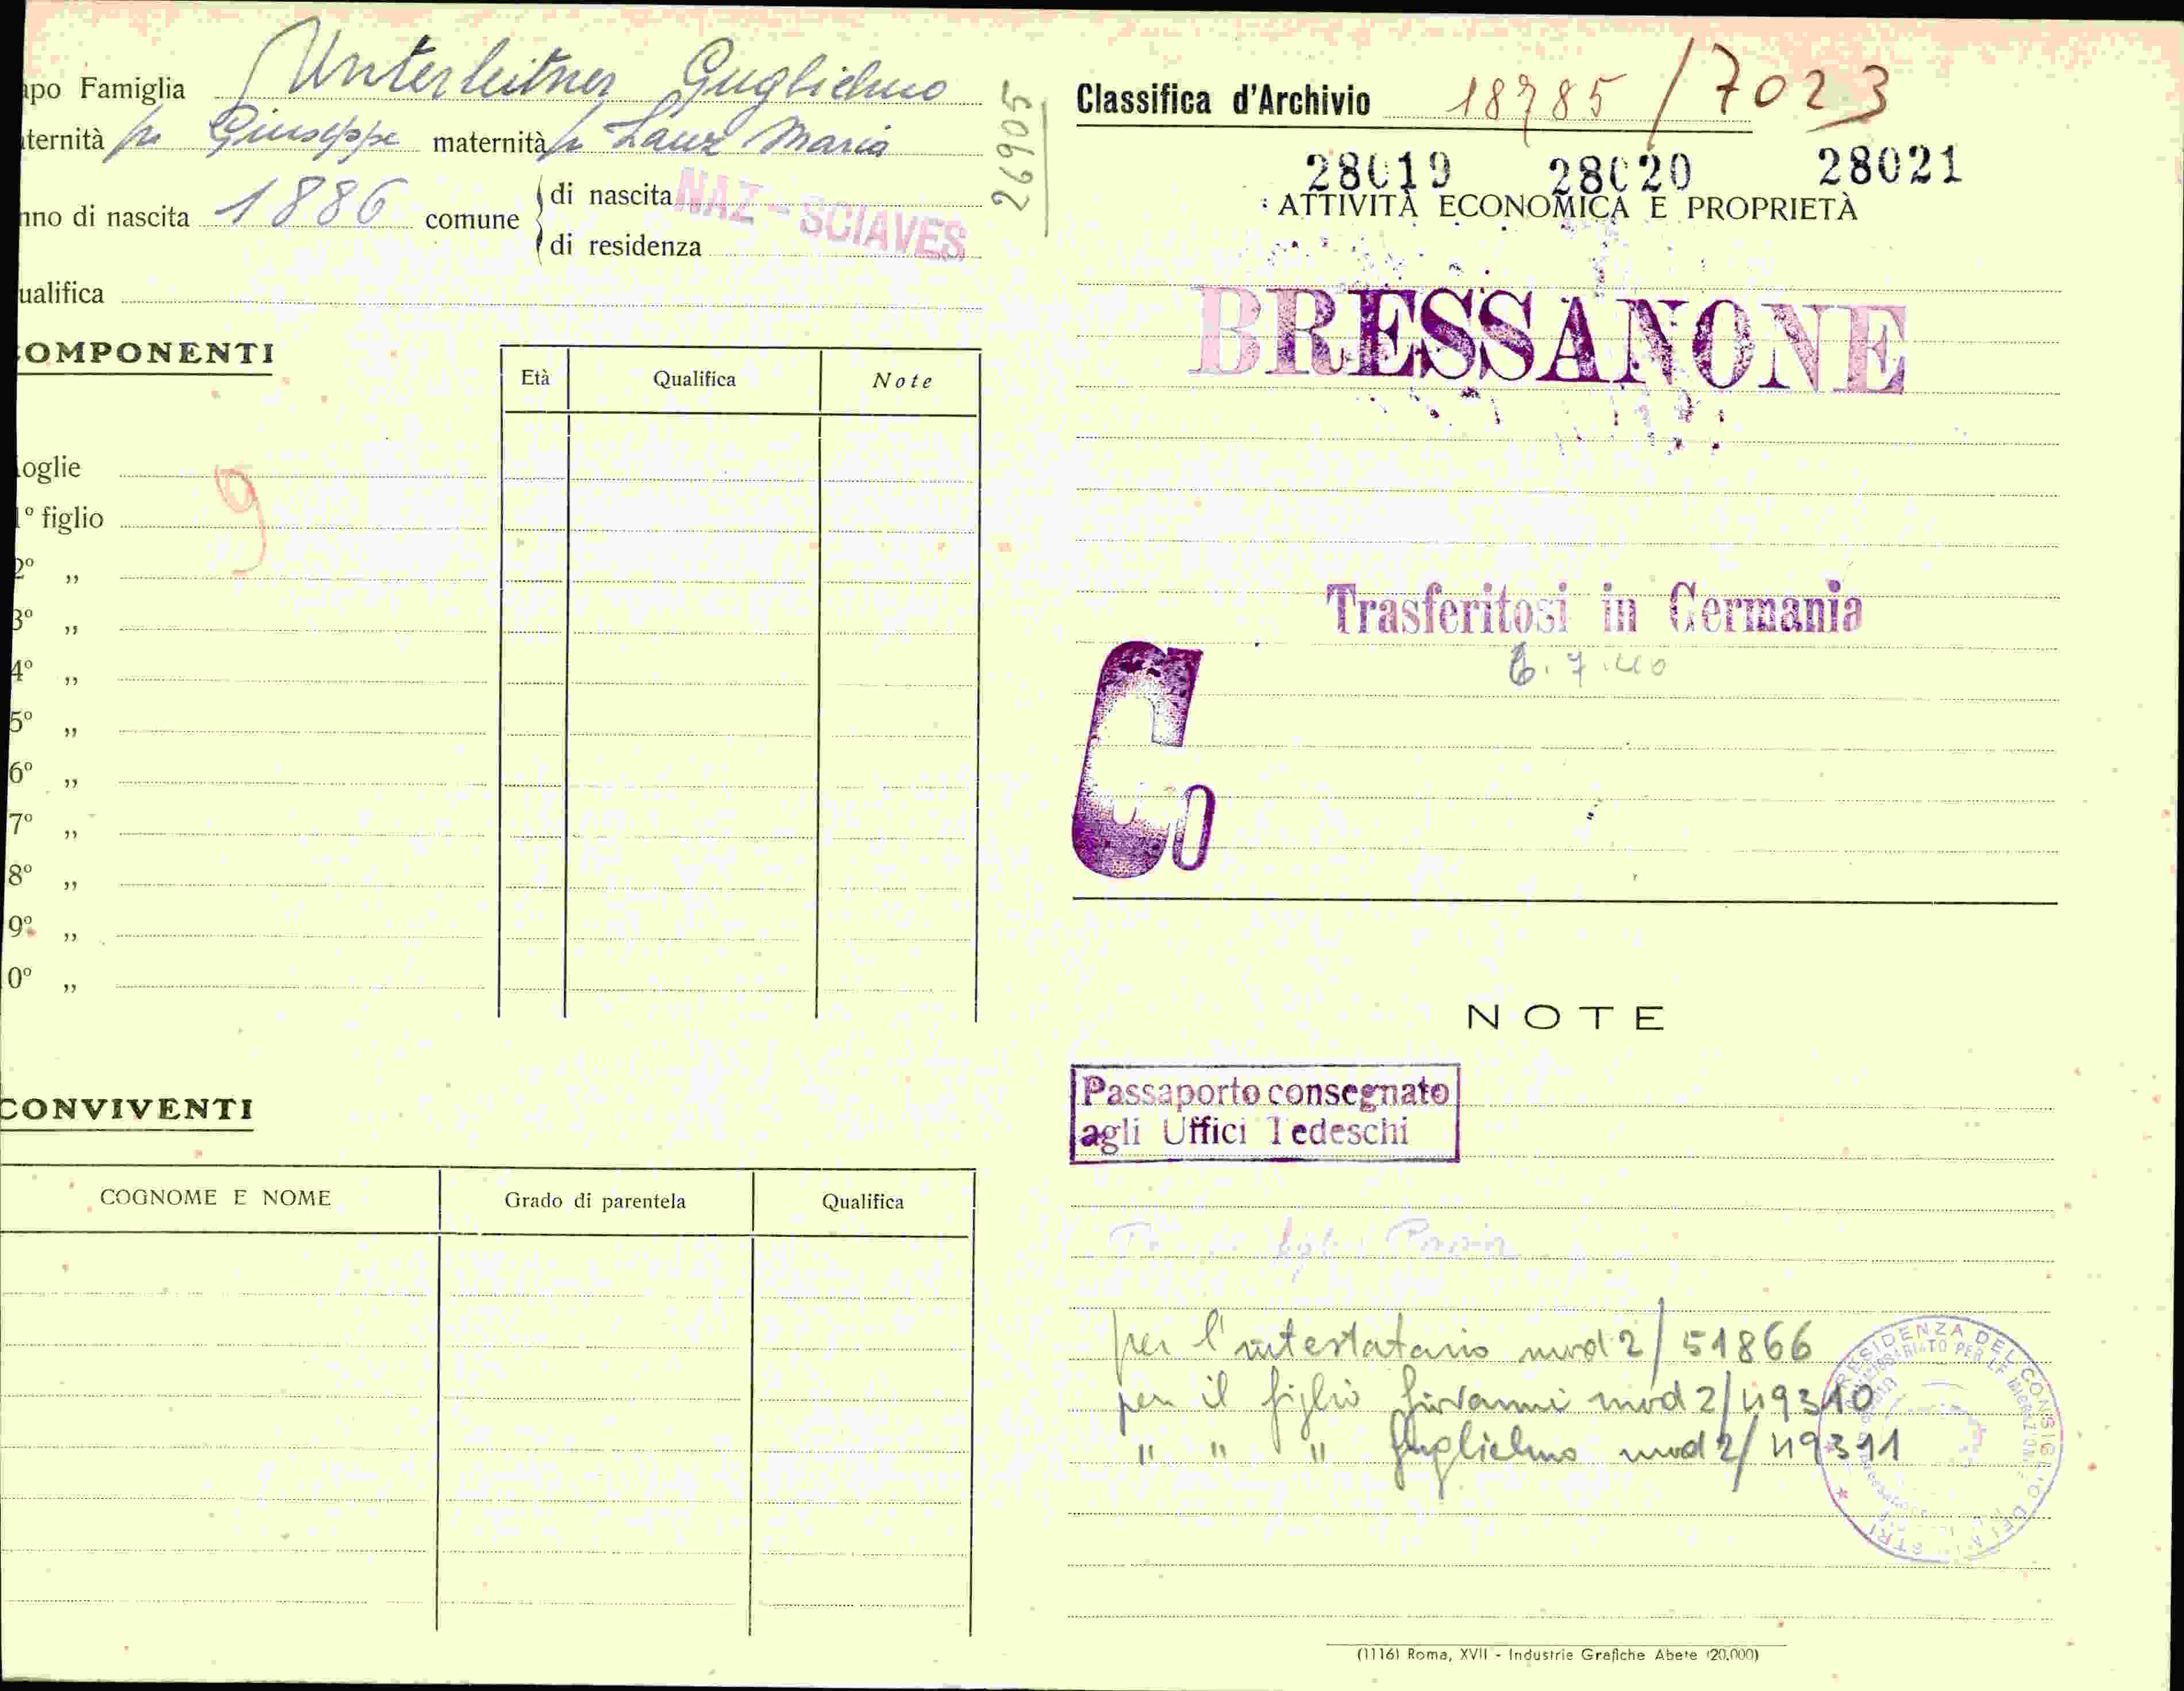 apo Famiglia Unterleitner Guglielmo
aternità fu Giuseppe maternità fu Lanz Maria
nno di nascita 1886 comune di nascita NAZ - SCIAVES
di residenza
ualifica
26905
OMPONENTI
Età Qualifica Note
oglie
1º figlio
2º „
3º „
4º „
5º „
6º „
7º „
8º „
9º „
0º „
CONVIVENTI
COGNOME E NOME Grado di parentela Qualifica
Classifica d'Archivio 18785 / 7023
28019 28020 28021
ATTIVITÀ ECONOMICA E PROPRIETÀ
BRESSANONE
Trasferitosi in Germania
6.7.40
Co
NOTE
Passaporto consegnato
agli Uffici Tedeschi
per l'intestatario mod 2/51866
per il figlio Giovanni mod 2/49310
" " " Guglielmo mod 2/49311
(1116) Roma, XVII - Industrie Grafiche Abete (20.000)